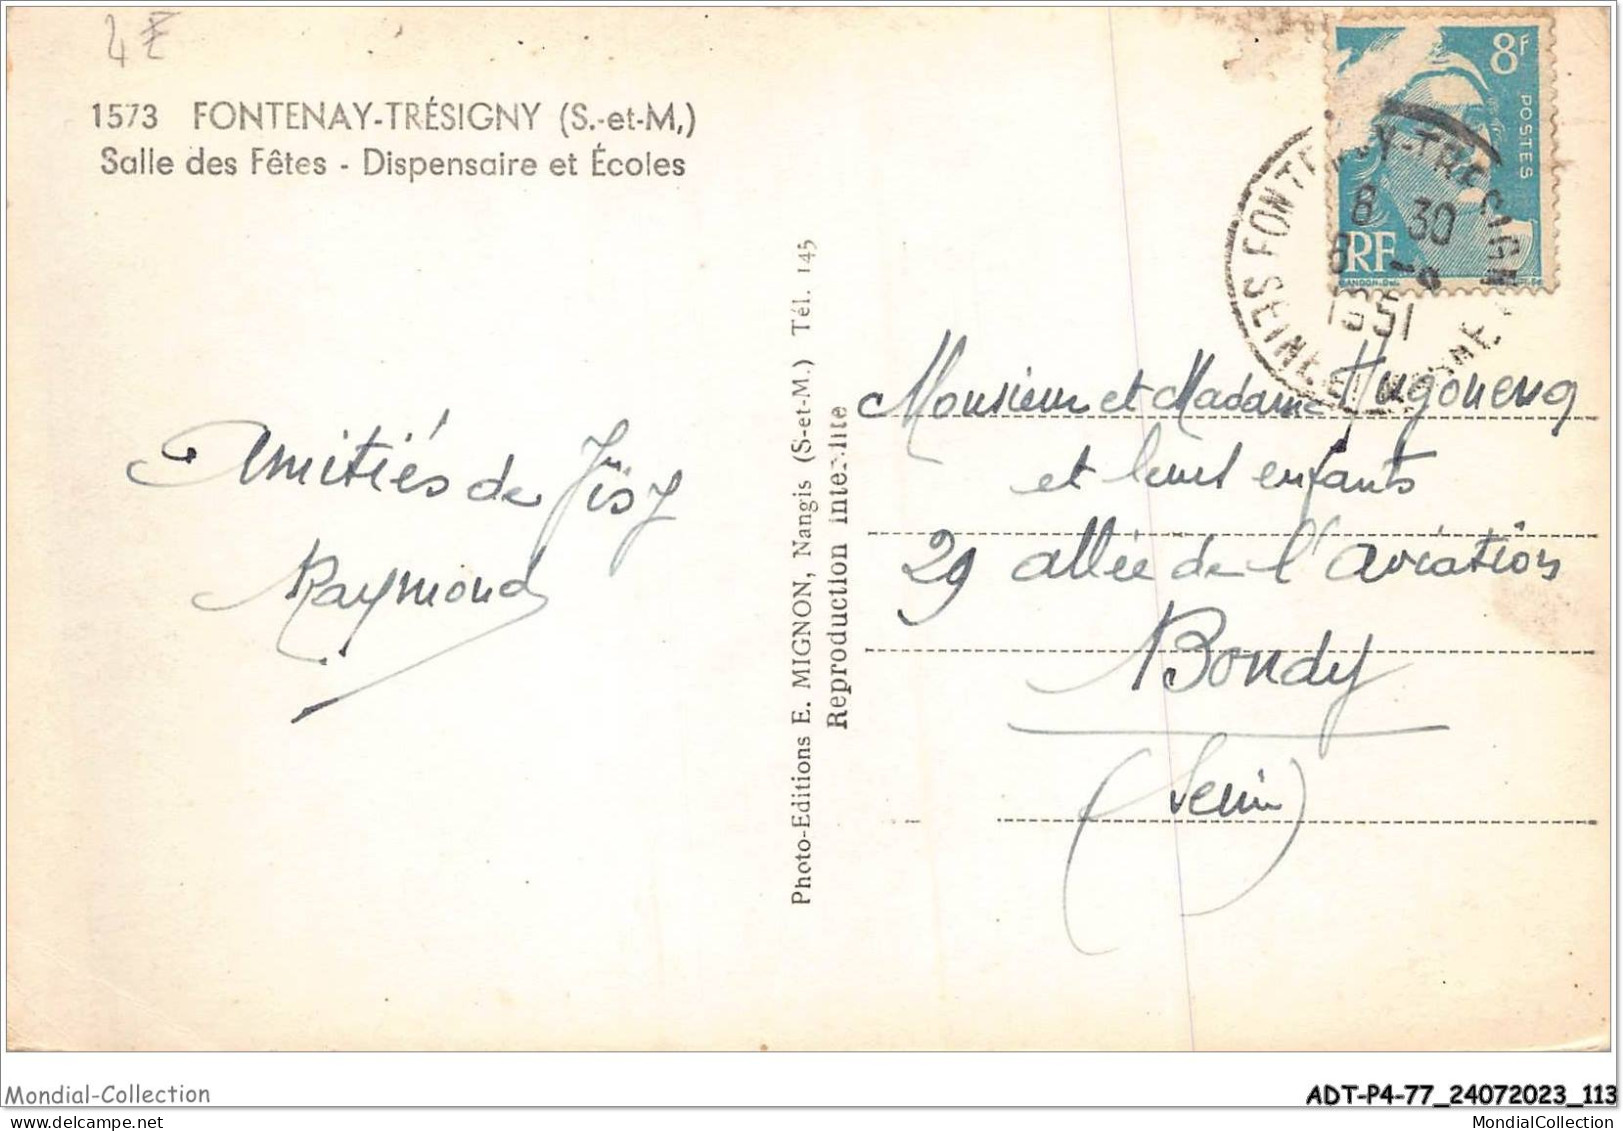 1573 FONTENAY-TRÉSIGNY (S.-et-M,)
Salle des Fêtes - Dispensaire et Écoles
Amitiés de
Raymond
Photo-Editions E. MIGNON, Nangis (S-et-M.) Tél. 145
Reproduction interdite
8F
POSTES
RF
8 30
1951
Monsieur et Madame Hugoneng
et leurs enfants
29 allée de l'aviation
Bondy
(Seine)
Mondial-Collection
ADT-P4-77_24072023_113
MondialCollection